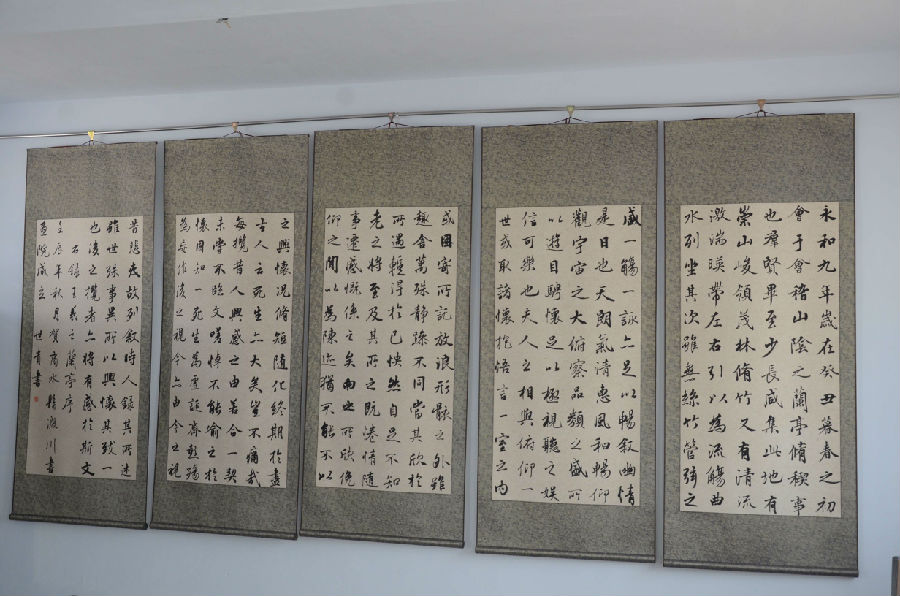 永和九年歲在癸丑暮春之初
會于會稽山陰之蘭亭脩禊事
也羣賢畢至少長咸集此地有
崇山峻領茂林脩竹又有清流
激湍暎帶左右引以為流觴曲
水列坐其次雖無絲竹管弦之
盛一觴一詠亦足以暢敘幽情
是日也天朗氣清惠風和暢仰
觀宇宙之大俯察品類之盛所
以遊目騁懷足以極視聽之娛
信可樂也夫人之相與俯仰一
世或取諸懷抱悟言一室之內
或因寄所託放浪形骸之外雖
趣舍萬殊靜躁不同當其欣於
所遇輒得於己怏然自足不知
老之將至及其所之既惓情隨
事遷感慨係之矣向之所欣俛
仰之間以為陳迹猶不能不以
之興懷況脩短隨化終期於盡
古人云死生亦大矣豈不痛哉
每攬昔人興感之由若合一契
未嘗不臨文嗟悼不能喻之於
懷固知一死生為虛誕齊彭殤
為妄作後之視今亦由今之視
昔悲夫故列敘時人錄其所述
雖世殊事異所以興懷其致一
也後之攬者亦將有感於斯文
右錄王羲之蘭亭序
壬辰年秋月賀商水縣川書
畫院成立 世書